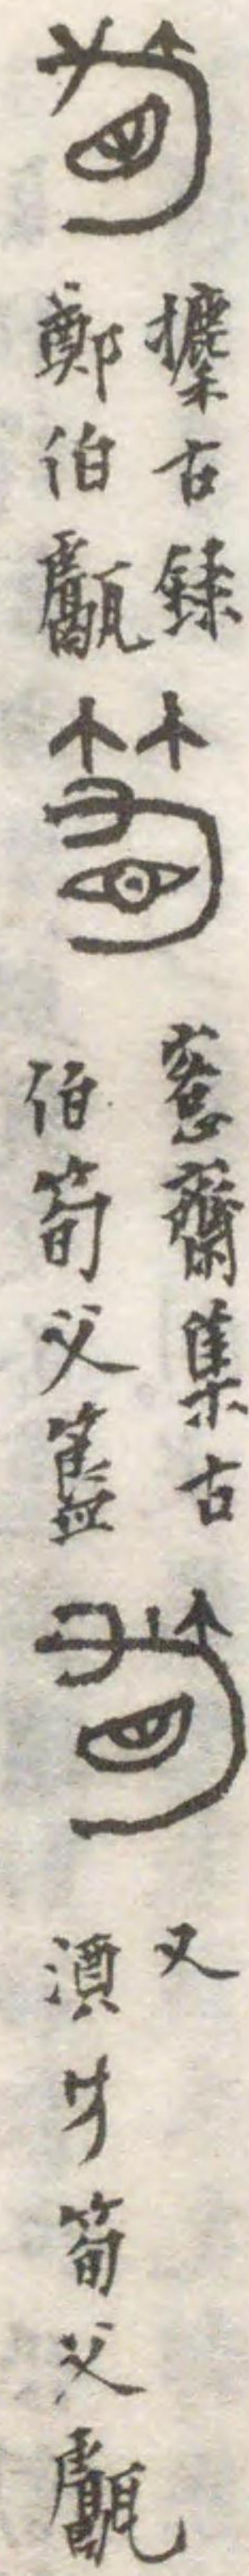 攈古錄
鄭伯甗
愙齋集古
伯筍父簋
又
筍父甗